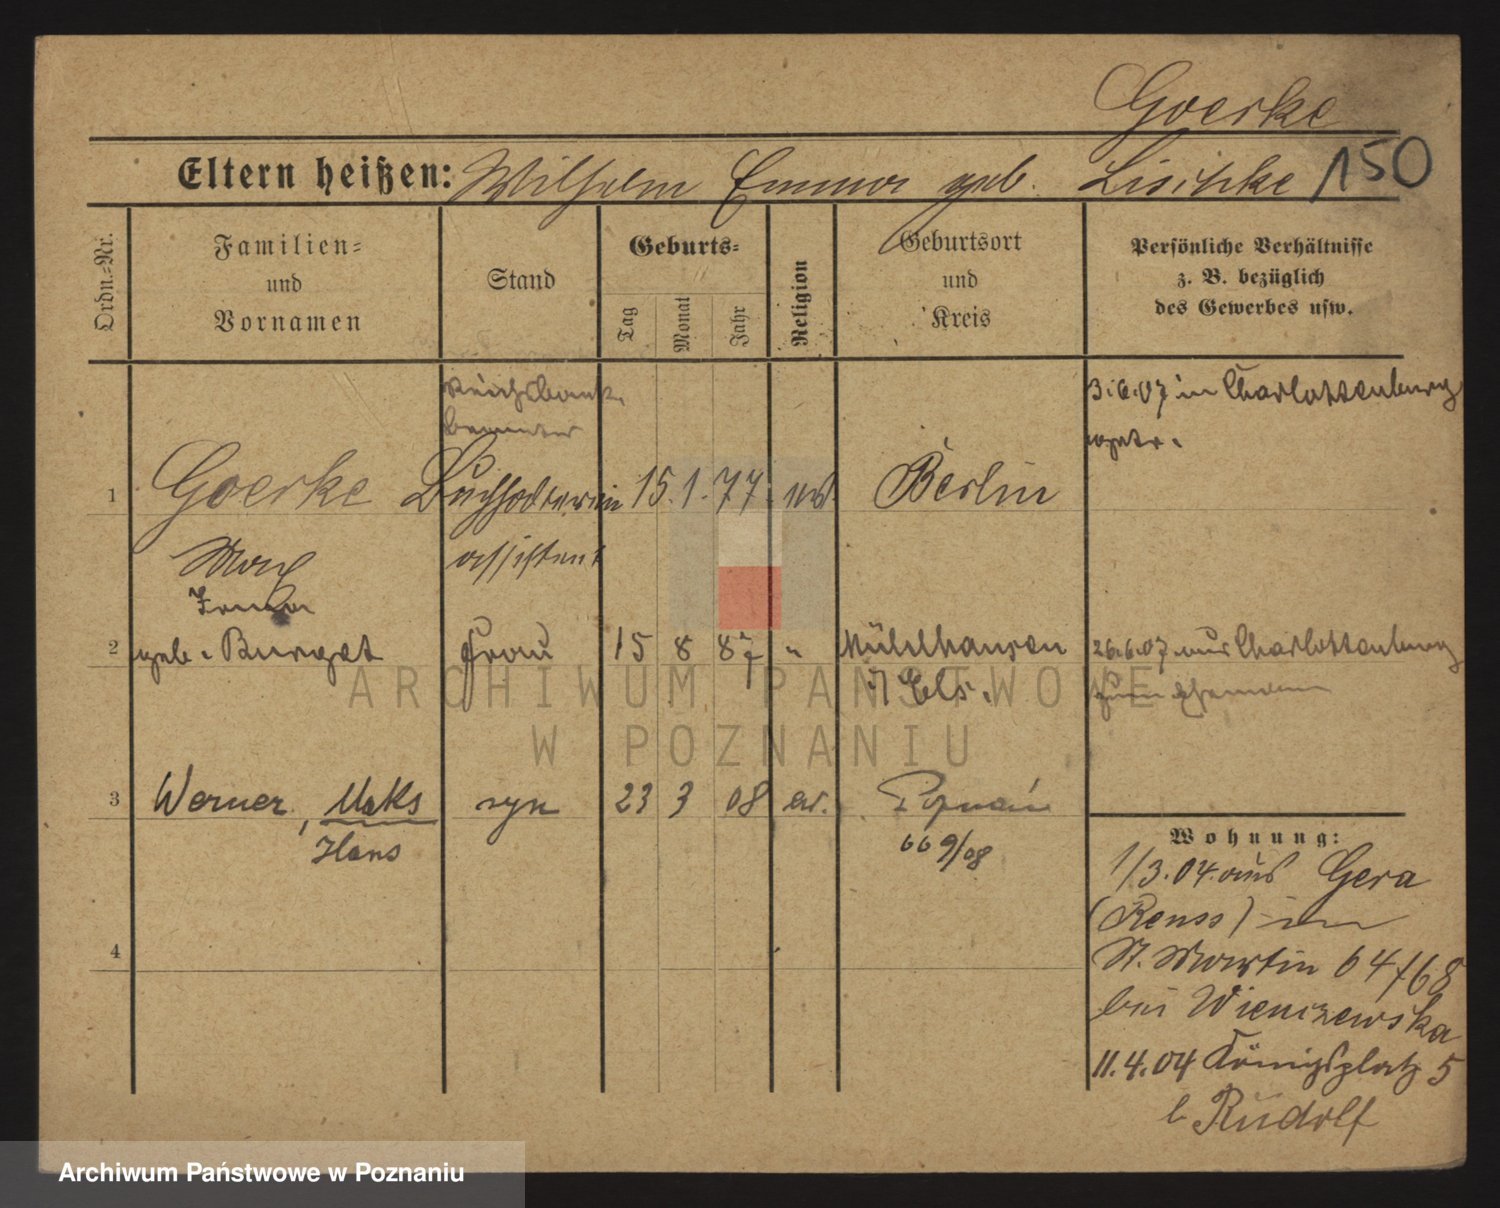 Goerke
Eltern heißen: Wilhelm Emma geb. Lischke 150
Ordn.-Nr.
Familien-
und
Vornamen
Stand
Geburts-
Tag
Monat
Jahr
Religion
Geburtsort
und
Kreis
Persönliche Verhältnisse
z. B. bezüglich
des Gewerbes usw.
Reichsbank
Beamter
3.6.07 in Charlottenburg
1 Goerke Buchhalterei 15. 1. 77. ev. Berlin
Max assistent
2 geb. Burget Frau 15 8 87 " Mühlhausen
i/ Els.
26.6.07 aus Charlottenburg
zum Ehemann
3 Werner, Maks syn 23 3 08 ew. Poznań
Hans 669/08
4
Wohnung:
1/3.04. aus Gera
(Reuss) in
St. Martin 64/68
bei Wienczewska
11.4.04 Königsplatz 5
b Rudolf
ARCHIWUM PAŃSTWOWE
W POZNANIU
Archiwum Państwowe w Poznaniu